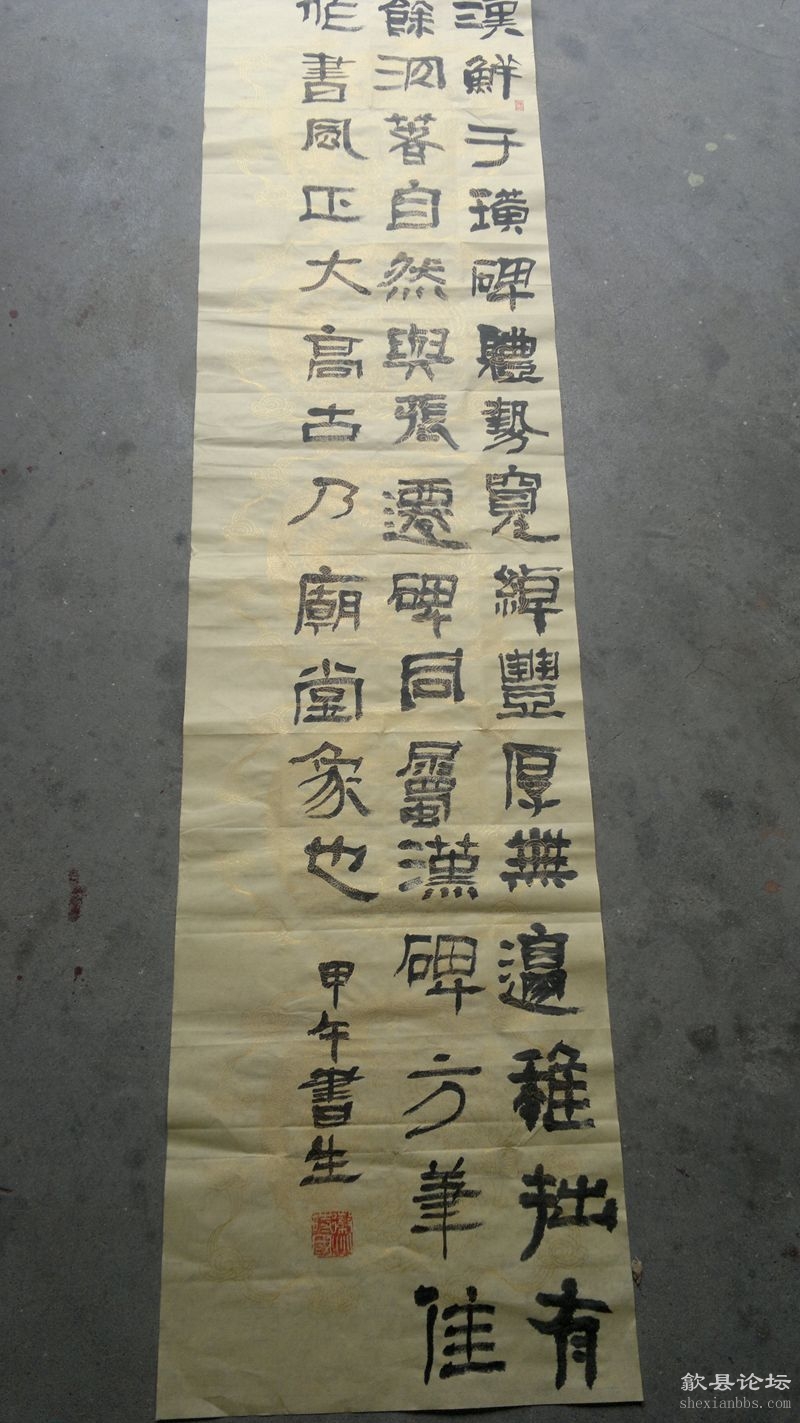 漢鮮于璜碑體勢寬綽豐厚無邊稚拙有
餘沉著自然與張遷碑同屬漢碑方筆佳
作書風正大高古乃廟堂象也
甲午書生
歙县论坛
shexianbbs.com